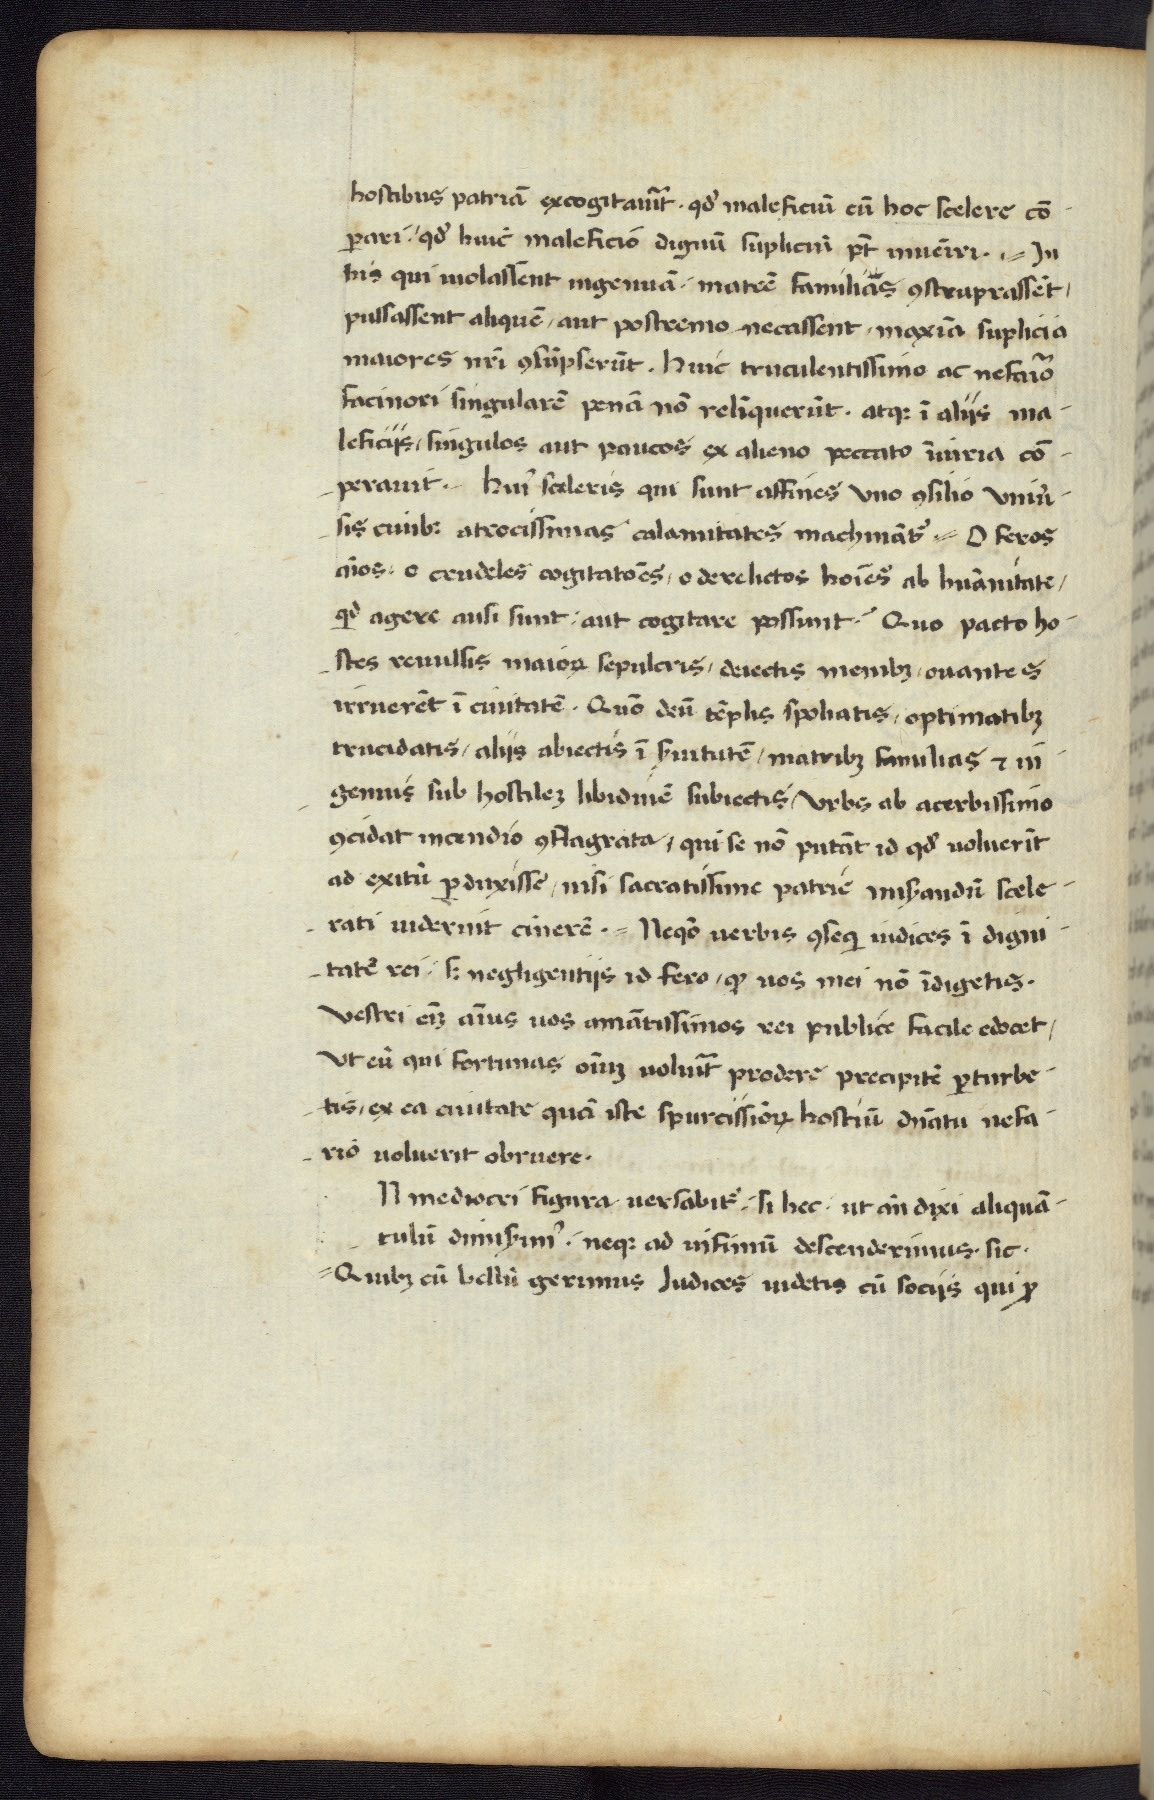 hostibus patriā excogitauūt · qd̕ maleficiū cū hoc scelere cō-
ꝑari · qd̕ huic maleficio dignū supliciū pt̄ inueīri · In
his qui uiolassent ingenuā · matrē familiās ꝯstuprassēt /
pulsassent aliquē / aut postremo necassent / maxīa suplicia
maiores nr̄i ꝯsūpserūt · Huic truculentissimo ac nefario
facinori singularē penā nō relīquerūt · atqꝫ ī aliis ma-
leficiis / singulos aut paucos ex alieno peccato īiuria cō-
perauit · Huiꝰ sceleris qui sunt affines uno ꝯsilio uniū-
sis ciuibꝫ atrocissimas calamitates machināt᷑ · O feros
aīos · o crudeles cogitatōes / o derelictos hoīes ab huānitate /
qd̕ agere ausi sunt / aut cogitare possunt · Quo pacto ho-
stes reuulsis maioꝝ sepulcris / deiectis menibꝫ / ouantes
irruerēt ī ciuitatē · Quō deū tēplis spoliatis / optimatibꝫ
trucidatis / aliis abiectis ī ẜuitutē / matribꝫ familias ⁊ in-
genuis sub hostileꝫ libidinē subiectis / urbs ab acerbissimo
ꝯcidat incendio ꝯflagrata / qui se nō putāt id qd̕ uoluerīt
ad exitū ꝑduxisse / nisi sacratissime patrie miẜandū scele-
rati uiderint cinerē · Neqō uerbis ꝯseq̄ iudices ī digni-
tatē rei / sꝫ negligentiis id fero / ꝙ uos mei nō īdigetis ·
Vestri eīꝫ aīus uos amātissimos rei publice facile edocet /
Vt eū qui fortunas oīuꝫ uoluīt prodere precipitē ꝑturbe-
tis / ex ea ciuitate quā iste spurcissīoꝝ hostiū dn̄atu nefa-
rio uoluerit obruere ·
N mediocri figura uersabit᷑ · si hec · ut an̄ dixi aliquā-
tulū dimiẜimꝰ · neqꝫ ad infimū descenderimus · sic ·
Quibꝫ cū bellū gerimus Iudices uidetis cū sociis qui ꝓ